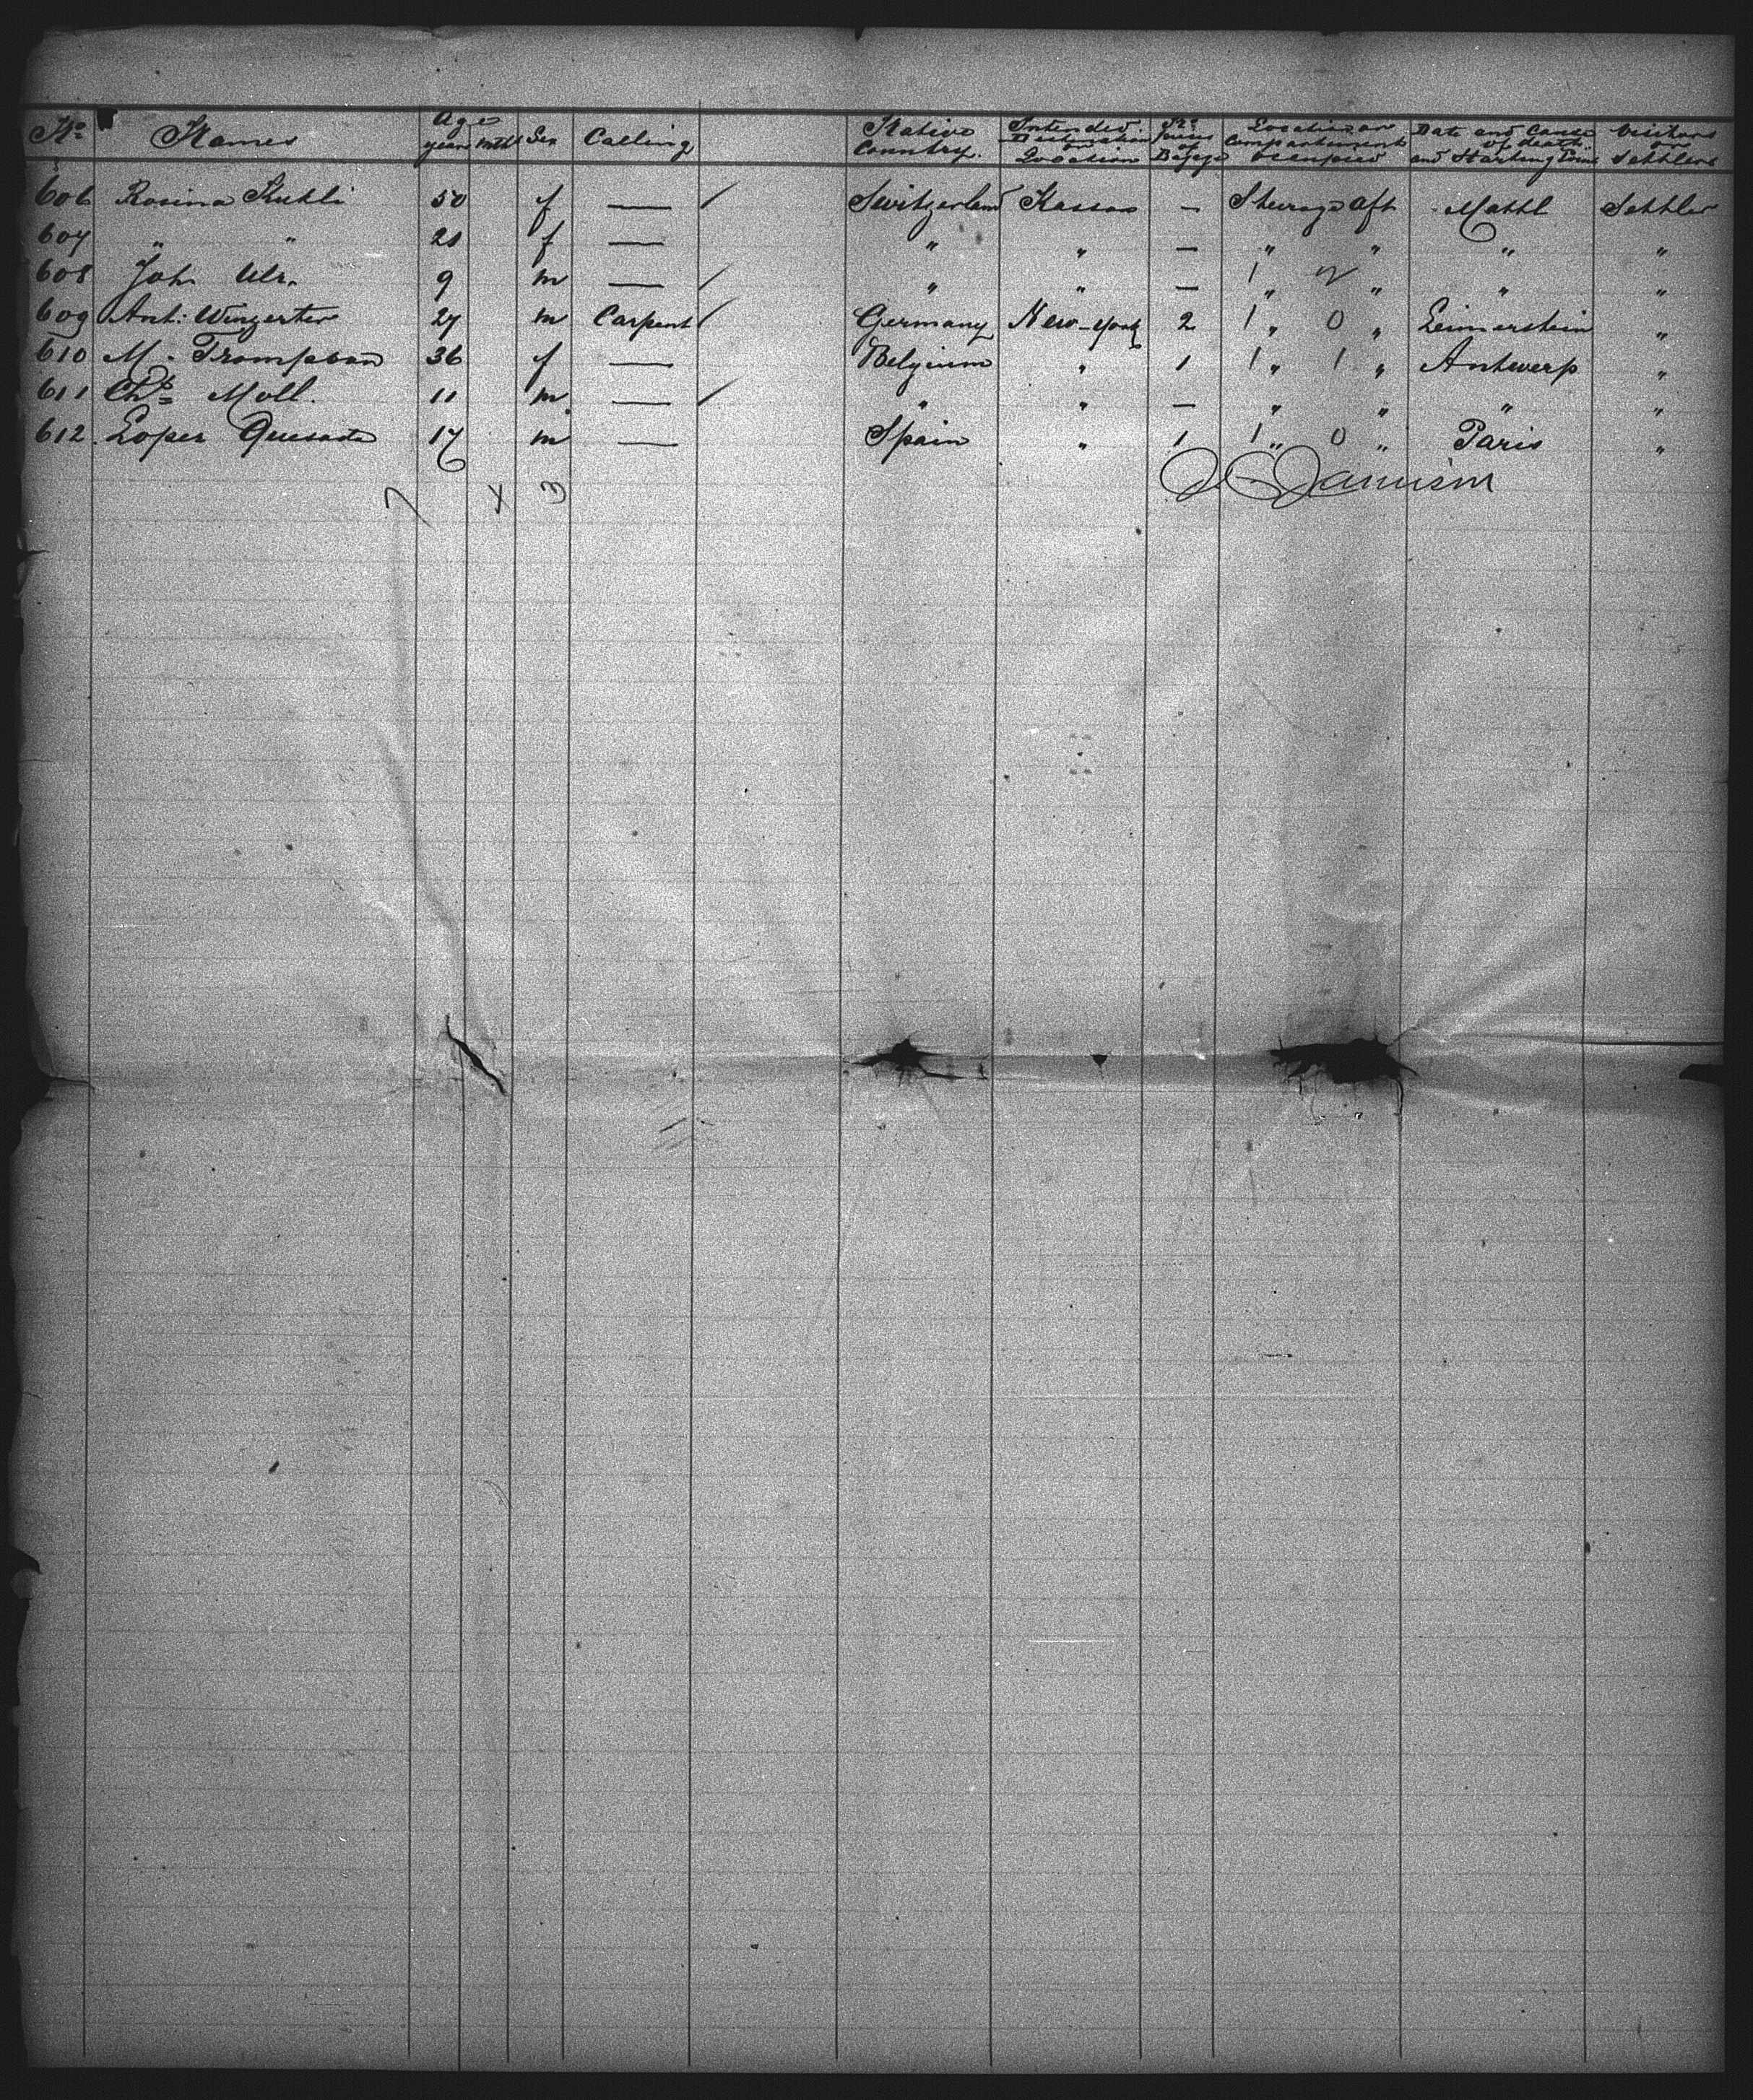 No Names Age years mths Sex Calling Native Country. Intended Destination or Location Nro pieces of Bagage Location or Compartiment occupied Date and Cause of death and Starting Point Visitors or Settlers
606 Rosina Kuhli 50 f — / Switzerland Kassas — Sterage aft Mattl Settler
607 " " 21 f — " " — " " " "
608 Joh. Ulr. 9 m — / " " — " " " "
609 Ant: Wingerter 27 m Carpent / Germany New-York 2 1 " 0 " Leimerstein "
610 M. Trompson 36 f — Belgium " 1 1 " 1 " Antwerp "
611 Chs Moll. 11 m — / " " — " " " "
612. Loper Quesada 17 m — Spain " 1 1 " 0 " Paris "
7 4 3